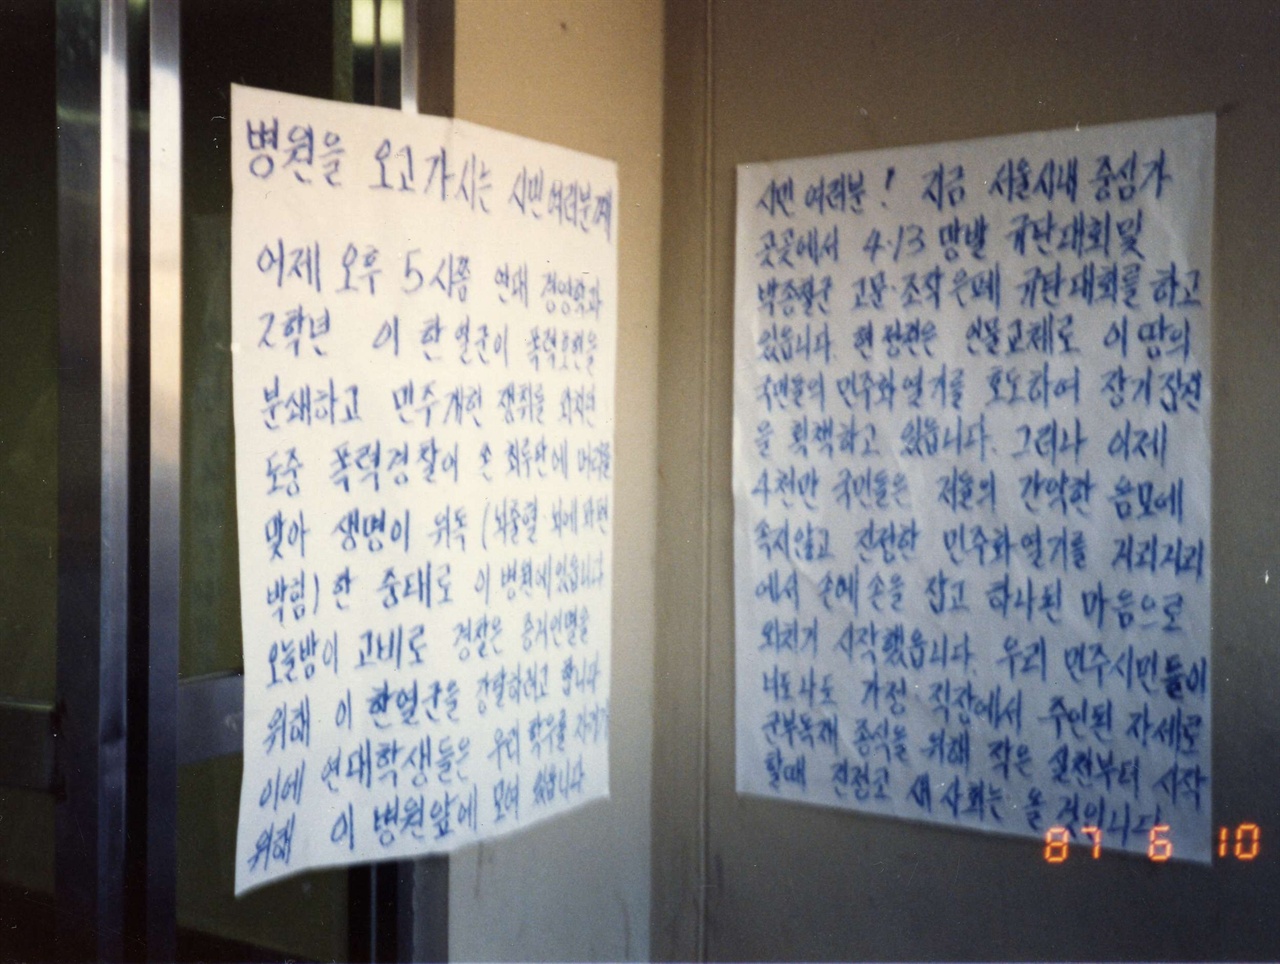 병원을 오고가시는 시민여러분께
어제 오후 5시쯤 연대 경영학과
2학년 이한열군이 폭력호헌을
분쇄하고 민주개헌 쟁취를 외치던
도중 폭력경찰이 쏜 최루탄에 머리를
맞아 생명이 위독 (뇌출혈·뇌에 파편
박힘) 한 중태로 이 병원에 있습니다
오늘밤이 고비로 경찰은 증거인멸을
위해 이한열군을 강탈하려고 합니다
이에 연대학생들은 우리 학우를 지키기
위해 이 병원앞에 모여 있습니다
시민 여러분! 지금 서울시내 중심가
곳곳에서 4·13 망발 규탄대회및
박종철군 고문·조작은폐 규탄대회를 하고
있읍니다. 현정권은 인물교체로 이 땅의
국민들의 민주화열기를 호도하여 장기집권
을 획책하고 있읍니다. 그러나 이제
4천만 국민들은 저들의 간악한 음모에
속지않고 진정한 민주화열기를 거리거리
에서 손에 손을 잡고 하나된 마음으로
외치기 시작했읍니다. 우리 민주시민들이
너도나도 가정 직장에서 주인된 자세로
군부독재 종식을 위해 작은 실천부터 시작
할때 진정코 새 사회는 올 것입니다
87 6 10